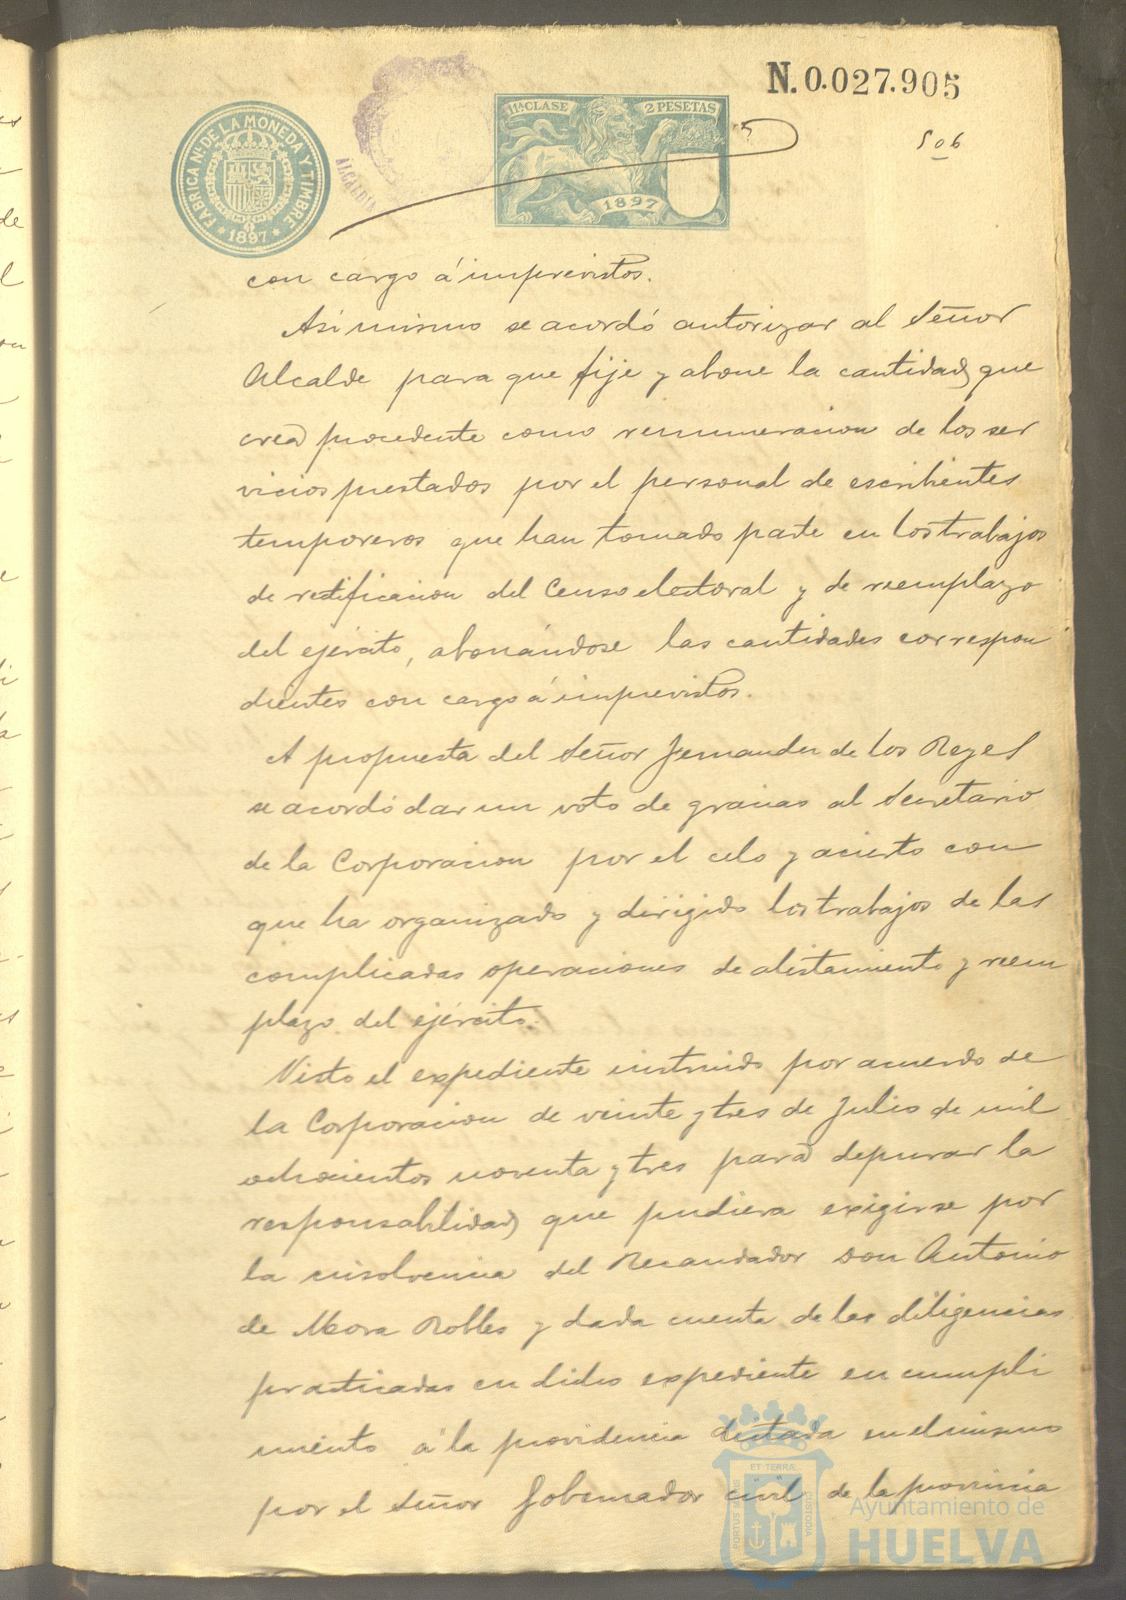 N. 0.027.905
11ª CLASE 2 PESETAS
1897
FABRICA Nl. DE LA MONEDA Y TIMBRE
* 1897 *
ALCALDIA
506
con cargo á imprevistos.
Asi mismo se acordó autorizar al Señor
Alcalde para que fije y abone la cantidad que
crea procedente como remuneracion de los ser
vicios prestados por el personal de escribientes
temporeros que han tomado parte en los trabajos
de rectificacion del Censo electoral y de reemplazo
del ejército, abonándose las cantidades correspon
dientes con cargo á imprevistos.
A propuesta del Señor Fernandez de los Reyes
se acordó dar un voto de gracias al Secretario
de la Corporacion por el celo y acierto con
que ha organizado y dirigido los trabajos de las
complicadas operaciones de alistamiento y reem
plazo del ejército.
Visto el expediente instruido por acuerdo de
la Corporacion de veinte y tres de Julio de mil
ochocientos noventa y tres para depurar la
responsabilidad que pudiera exigirse por
la insolvencia del Recaudador Don Antonio
de Mora Robles y dada cuenta de las diligencias
practicadas en dicho expediente en cumpli
miento á la providencia dictada en el mismo
por el Señor Gobernador civil de la provincia
PORTUS MARIS ET TERRAE CUSTODIA
Ayuntamiento de
HUELVA